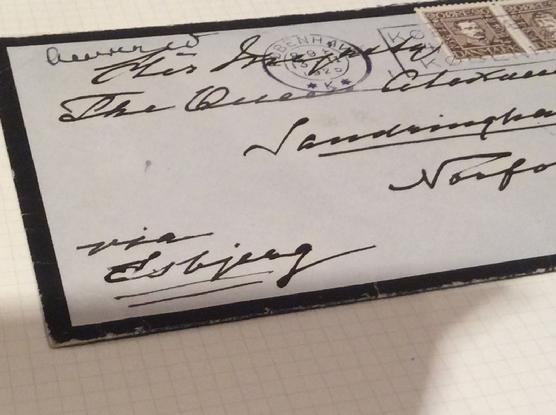 Answered
Her Majesty
The Queen Alexan
Sandringha
Norfo
via
Esbjerg
KØBENHAVN
1925
*K*
KØ
KØBEN